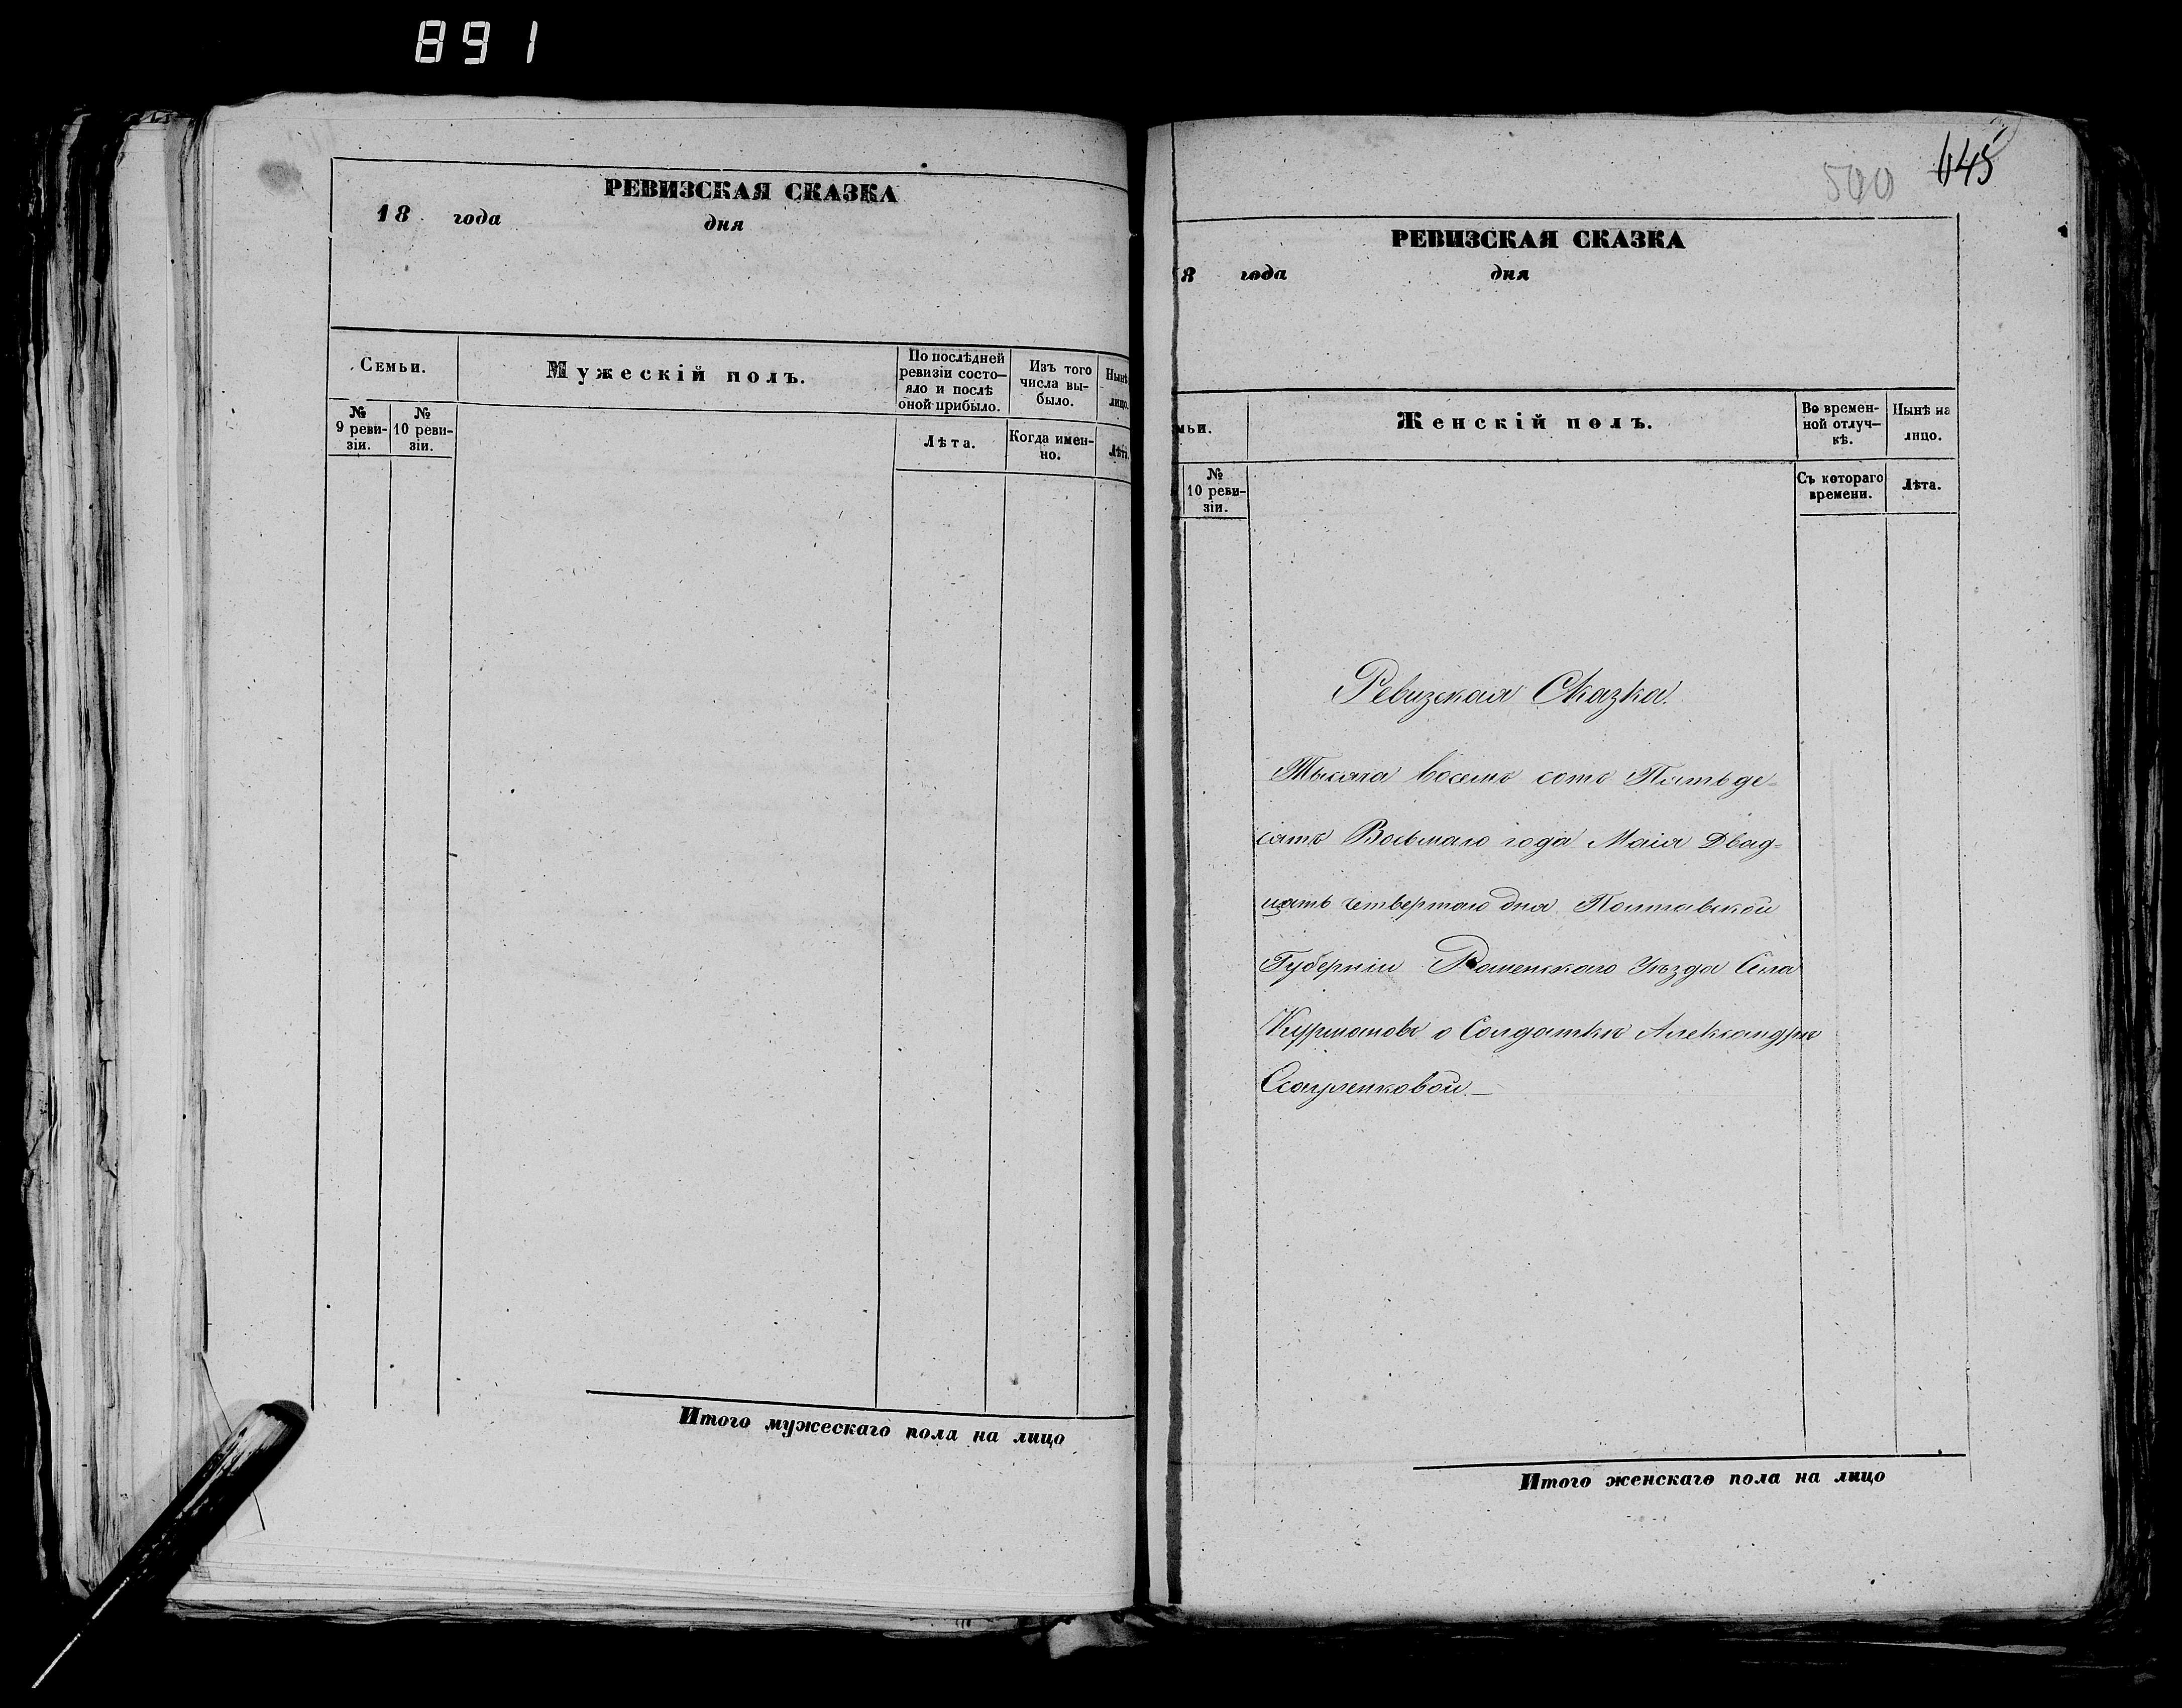 891
РЕВИЗСКАЯ СКАЗКА
18 года дня
Семьи.
Мужескій полъ.
По послѣдней ревизіи состо—яло и послѣ оной прибыло.
Изъ того числа вы-было.
Нынѣ лицо.
№ 9 реви-зіи.
№ 10 реви-зіи.
Лѣта.
Когда имен-но.
Лѣта.
Итого мужескаго пола на лицо
500 645
РЕВИЗСКАЯ СКАЗКА
8 года дня
мьи.
Женскій полъ.
Во времен-ной отлуч—кѣ.
Нынѣ на лицо.
№ 10 реви-зіи.
Съ котораго времени.
Лѣта.
Ревизская Сказка.
Тысяча восемъ сотъ Пятьде=
сятъ Восьмаго года Маія Двад=
цать четвертаго дня Полтавской
Губерніи Роменскаго Уѣзда Села
о Солдаткѣ Александрѣ
Есауленковой.—
Итого женскаго пола на лицо